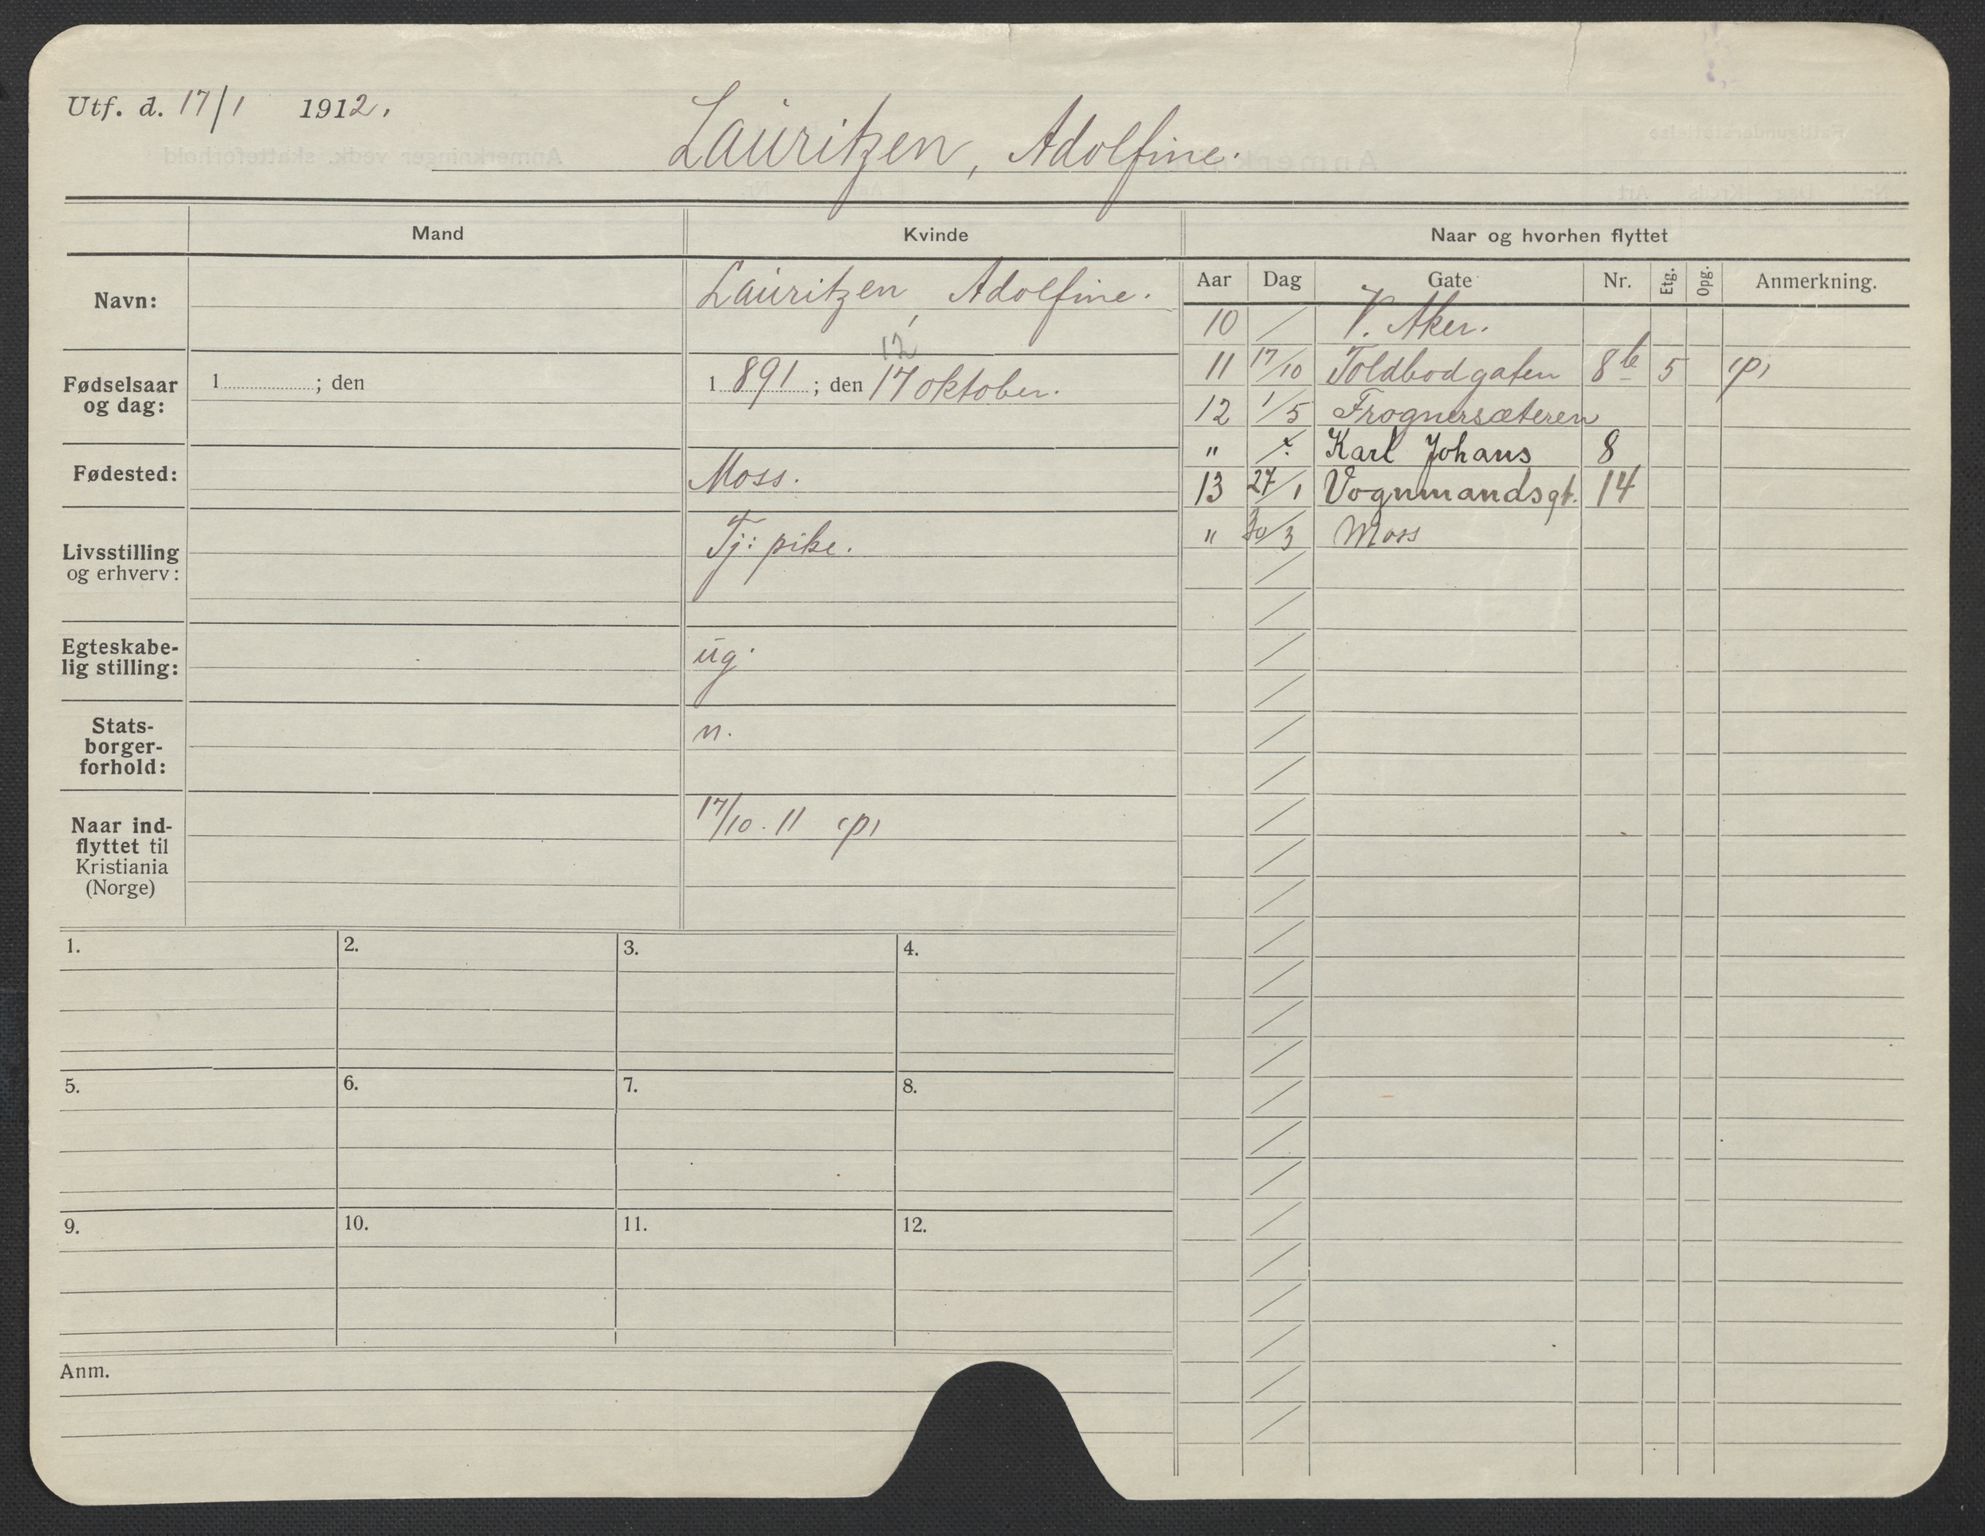 Utf. d. 17/1 1912.
Lauritzen, Adolfine.
Mand Kvinde Naar og hvorhen flyttet
Aar Dag Gate Nr. Etg. Opg. Anmerkning.
Navn: Lauritzen, Adolfine.
Fødselsaar og dag: 1 ; den
12
1 891 ; den 17 oktober.
Fødested: Moss.
Livsstilling og erhverv: Tj: pike.
Egteskabe-
lig stilling: ug.
Stats-
borger-
forhold: n.
Naar ind-
flyttet til
Kristiania
(Norge) 17/10. 11 (p)
10 / V. Aker.
11 17/10 Toldbodgaten 8b 5 (p)
12 1/5 Frognersæteren
" / Karl Johans 8
13 27/1 Vognmandsgt. 14
" 30/3 Moss
1. 2. 3. 4.
5. 6. 7. 8.
9. 10. 11. 12.
Anm.